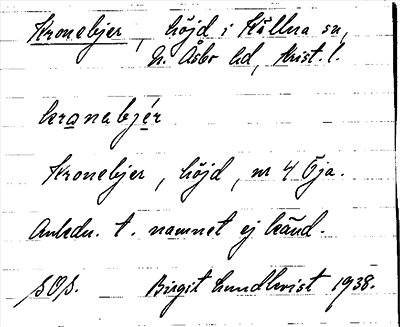 Kronebjer, höjd i Källna sn,
N. Åsbo hd, Krist. l.
kranabjér
Kronebjer, höjd, nr 4 Öja.
Anledn. t. namnet ej känd.
SOS. Birgit Lundkvist 1938.